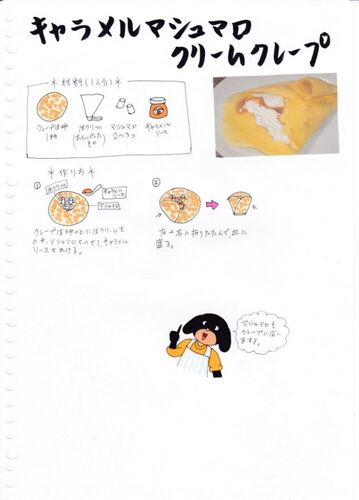 キャラメルマシュマロ
クリームクレープ
＊材料(1人分)＊
クレープ生地
1枚
生クリーム
(ホイップしたもの)
マシュマロ
2〜3コ
キャラメル
ソース
＊作り方＊
①
生クリーム
キャラメル
ソース
マシュマロ
クレープ生地の上に生クリームを
のせ、マシュマロをのせて、キャラメル
ソースをかける。
②
左→右に折りたたんで、皿に
盛る。
マシュマロも
クレープに合い
ますよ。